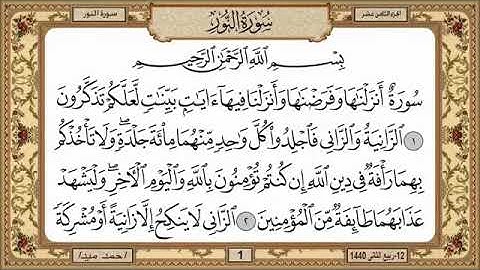 الجزء الثامن عشر
سورة النور
سُورَةُ النُّورِ
بِسْمِ اللَّهِ الرَّحْمَٰنِ الرَّحِيمِ
سُورَةٌ أَنزَلْنَٰهَا وَفَرَضْنَٰهَا وَأَنزَلْنَا فِيهَآ ءَايَٰتٍۭ بَيِّنَٰتٍ لَّعَلَّكُمْ تَذَكَّرُونَ
١ ٱلزَّانِيَةُ وَٱلزَّانِى فَٱجْلِدُوا۟ كُلَّ وَٰحِدٍ مِّنْهُمَا مِا۟ئَةَ جَلْدَةٍ ۖ وَلَا تَأْخُذْكُم
بِهِمَا رَأْفَةٌ فِى دِينِ ٱللَّهِ إِن كُنتُمْ تُؤْمِنُونَ بِٱللَّهِ وَٱلْيَوْمِ ٱلْءَاخِرِ ۖ وَلْيَشْهَدْ
عَذَابَهُمَا طَآئِفَةٌ مِّنَ ٱلْمُؤْمِنِينَ ٢ ٱلزَّانِى لَا يَنكِحُ إِلَّا زَانِيَةً أَوْ مُشْرِكَةً
12-ربيع الثاني 1440
1